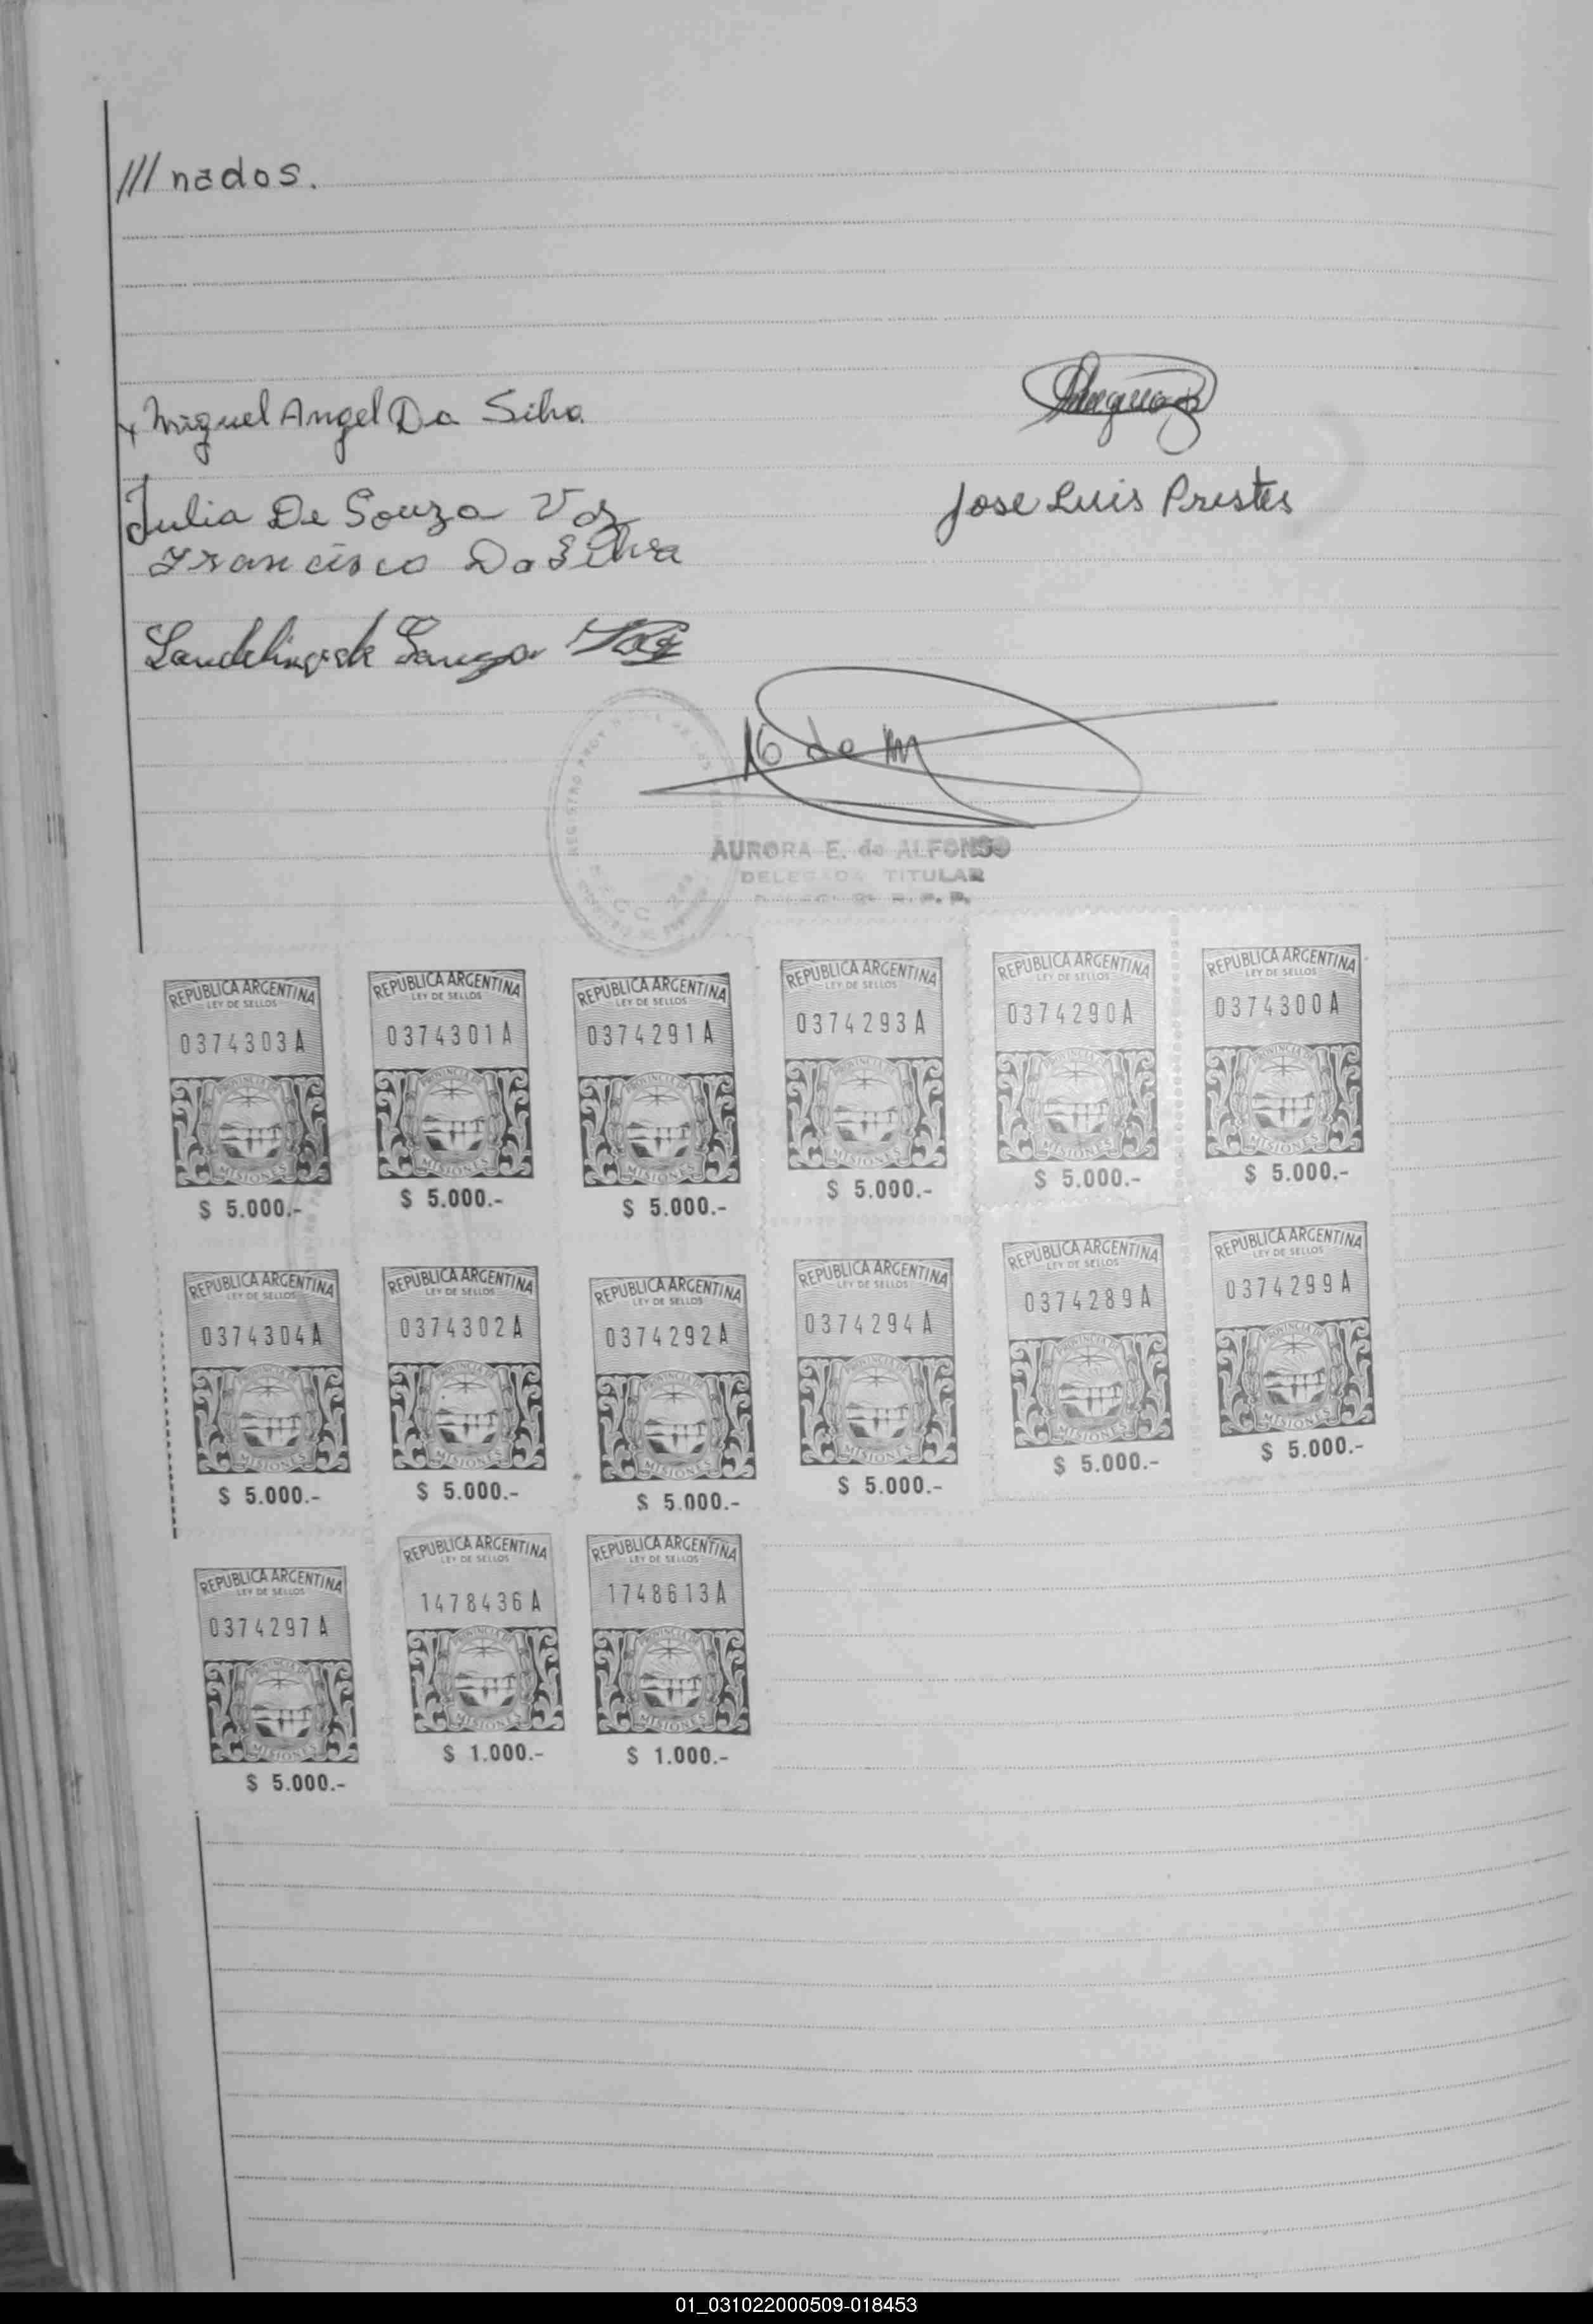 /// nados.
x Miguel Angel Da Silva
Julia De Souza Vaz
Jose Luis Prestes
Francisco Da Silva
AURORA E. de ALFONSO
DELEGADA TITULAR
REPUBLICA ARGENTINA REPUBLICA ARGENTINA REPUBLICA ARGENTINA REPUBLICA ARGENTINA REPUBLICA ARGENTINA REPUBLICA ARGENTINA
LEY DE SELLOS LEY DE SELLOS LEY DE SELLOS LEY DE SELLOS LEY DE SELLOS LEY DE SELLOS
0374303A 0374301A 0374291A 0374293A 0374290A 0374300A
PROVINCIA DE PROVINCIA DE PROVINCIA DE PROVINCIA DE PROVINCIA DE PROVINCIA DE
MISIONES MISIONES MISIONES MISIONES MISIONES MISIONES
$ 5.000.- $ 5.000.- $ 5.000.- $ 5.000.- $ 5.000.- $ 5.000.-
REPUBLICA ARGENTINA REPUBLICA ARGENTINA REPUBLICA ARGENTINA REPUBLICA ARGENTINA REPUBLICA ARGENTINA REPUBLICA ARGENTINA
LEY DE SELLOS LEY DE SELLOS LEY DE SELLOS LEY DE SELLOS LEY DE SELLOS LEY DE SELLOS
0374304A 0374302A 0374292A 0374294A 0374289A 0374299A
PROVINCIA DE PROVINCIA DE PROVINCIA DE PROVINCIA DE PROVINCIA DE PROVINCIA DE
MISIONES MISIONES MISIONES MISIONES MISIONES MISIONES
$ 5.000.- $ 5.000.- $ 5.000.- $ 5.000.- $ 5.000.- $ 5.000.-
REPUBLICA ARGENTINA REPUBLICA ARGENTINA REPUBLICA ARGENTINA
LEY DE SELLOS LEY DE SELLOS LEY DE SELLOS
0374297A 1478436A 1748613A
PROVINCIA DE PROVINCIA DE PROVINCIA DE
MISIONES MISIONES MISIONES
$ 5.000.- $ 1.000.- $ 1.000.-
01_031022000509-018453